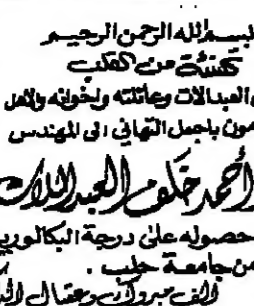 بسم الله الرحمن الرحيم
تهنئة من القلب
العبدالات وعائلته وإخوانه والأهل
مون باجمل التهاني الى المهندس
أحمد خلف العبداللات
حصوله على درجة البكالوري
من جامعة حلب .
الف مبروك وعقبال